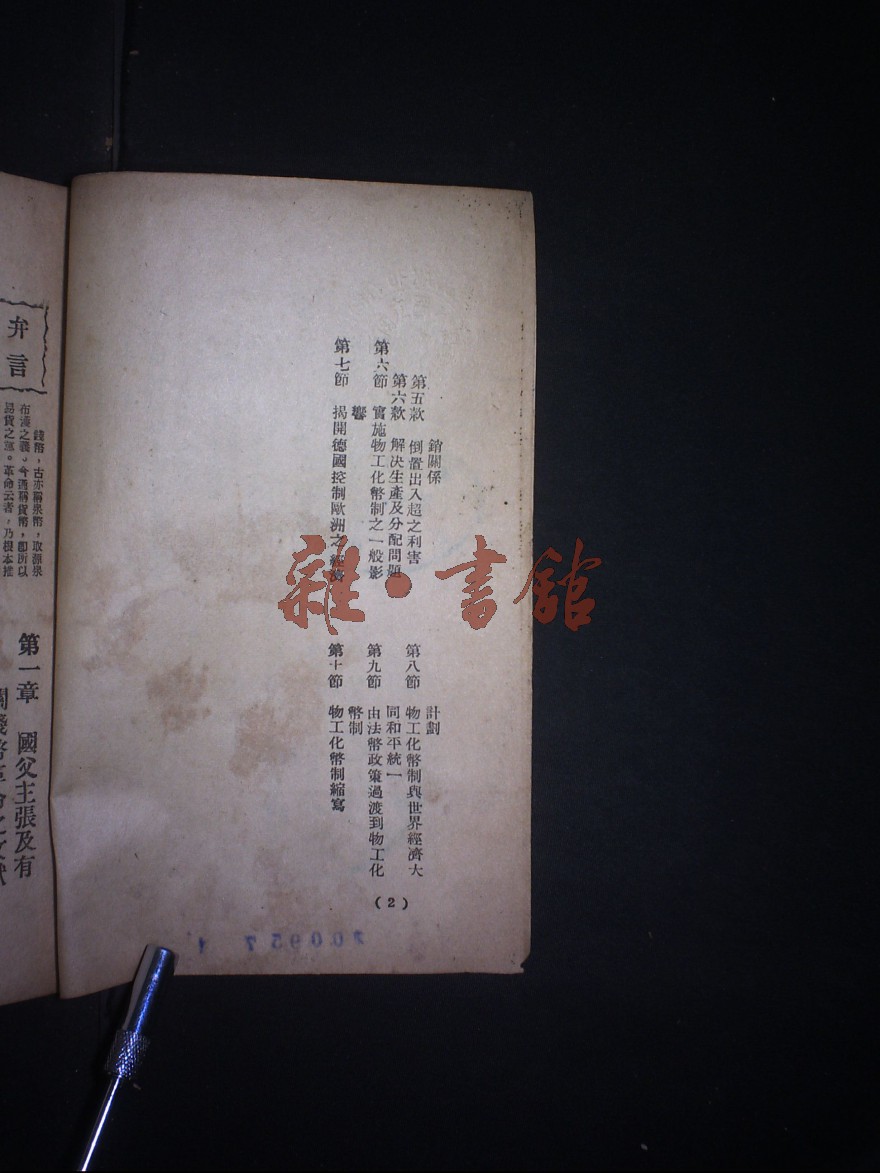 銷關係
第五款 倒置出入超之利害
第六款 解决生產及分配問題
第六節 實施物工化幣制之一般影
響
第七節 揭開德國控制歐洲之經濟
計劃
第八節 物工化幣制與世界經濟大
同和平統一
第九節 由法幣政策過渡到物工化
幣制
第十節 物工化幣制縮寫
(2)
200957 1
雜·書館
弁言
錢幣，古亦稱泉幣，取源泉
布濩之義。今通稱貨幣，即所以
易貨之意。革命云者，乃根本推
第一章 國父主張及有
關錢幣革命之文獻